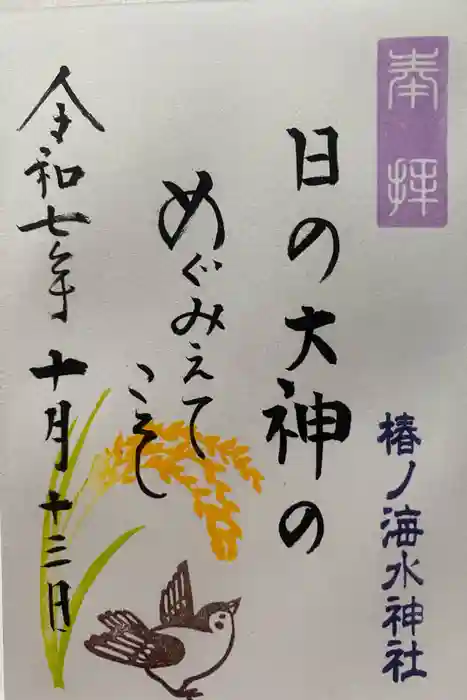 奉拝
椿ノ海水神社
日の大神の
めぐみえて
こそし
令和七年十月十三日